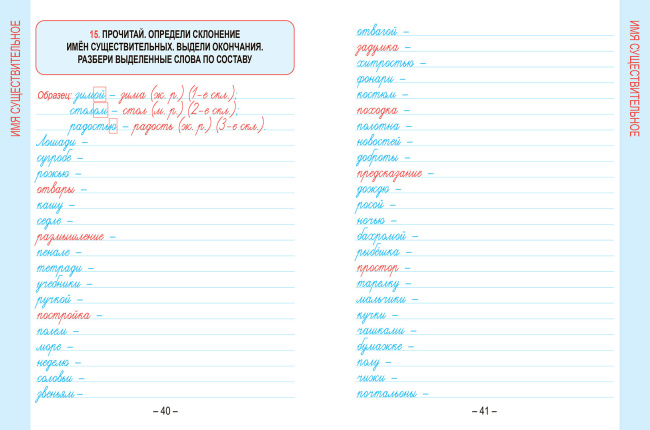 ИМЯ СУЩЕСТВИТЕЛЬНОЕ
15. ПРОЧИТАЙ. ОПРЕДЕЛИ СКЛОНЕНИЕ
ИМЁН СУЩЕСТВИТЕЛЬНЫХ. ВЫДЕЛИ ОКОНЧАНИЯ.
РАЗБЕРИ ВЫДЕЛЕННЫЕ СЛОВА ПО СОСТАВУ
Образец: зимой – зима (ж. р.) (1-е скл.);
столом – стол (м. р.) (2-е скл.);
радостью – радость (ж. р.) (3-е скл.).
Лошади –
сугробе –
рожью –
отвары –
кашу –
седле –
размышление –
пенале –
тетради –
учебники –
ручкой –
постройка –
полем –
море –
неделю –
соловьи –
звеньям –
– 40 –
отвагой –
задумка –
хитростью –
фонари –
костюм –
походка –
полотна –
новостей –
доброты –
предсказание –
дождю –
росой –
ночью –
бахромой –
рыбёшка –
простор –
тарелку –
мальчики –
кучки –
чашками –
бумажке –
полу –
чижи –
почтальоны –
– 41 –
ИМЯ СУЩЕСТВИТЕЛЬНОЕ